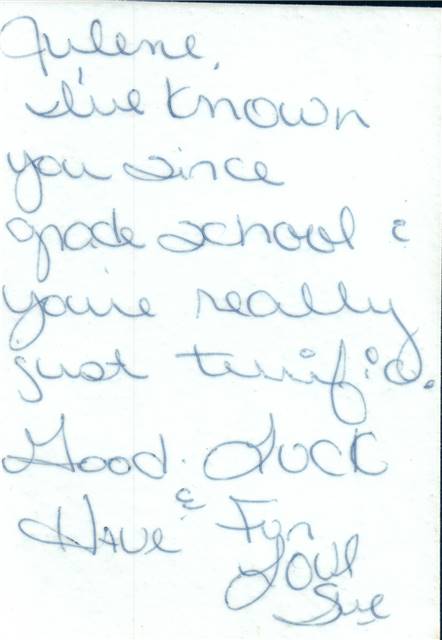 Julene,
I've known
you since
grade school &
you're really
just terrific.
Good Luck
& Have Fun
Love
Sue